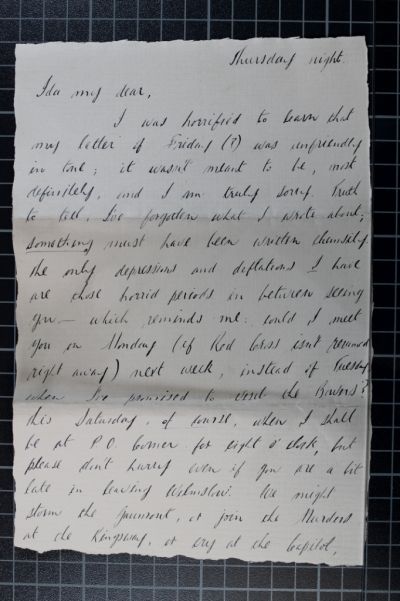 Thursday night.
Ida my dear,
I was horrified to learn that
my letter of Friday (?) was unfriendly
in tone; it wasn't meant to be, most
definitely, and I am truly sorry. Truth
to tell, I've forgotten what I wrote about;
something must have been written clumsily.
The only depressions and deflations I have
are those horrid periods in between seeing
you — which reminds me: could I meet
you on Monday (if Red Cross isn't resumed
right away) next week, instead of Tuesday
when I've promised to visit the Bowers?
This Saturday, of course, when I shall
be at P.O. Corner for eight o'clock, but
please don't hurry even if you are a bit
late in leaving Wilmslow. We might
storm the, or join the Murders
at the Kingsway, or cry at the Capitol,